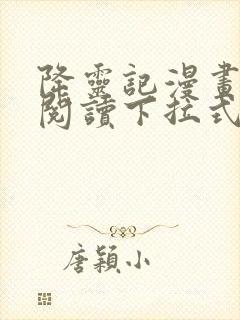 降靈記漫畫
閱讀下拉式
唐穎小